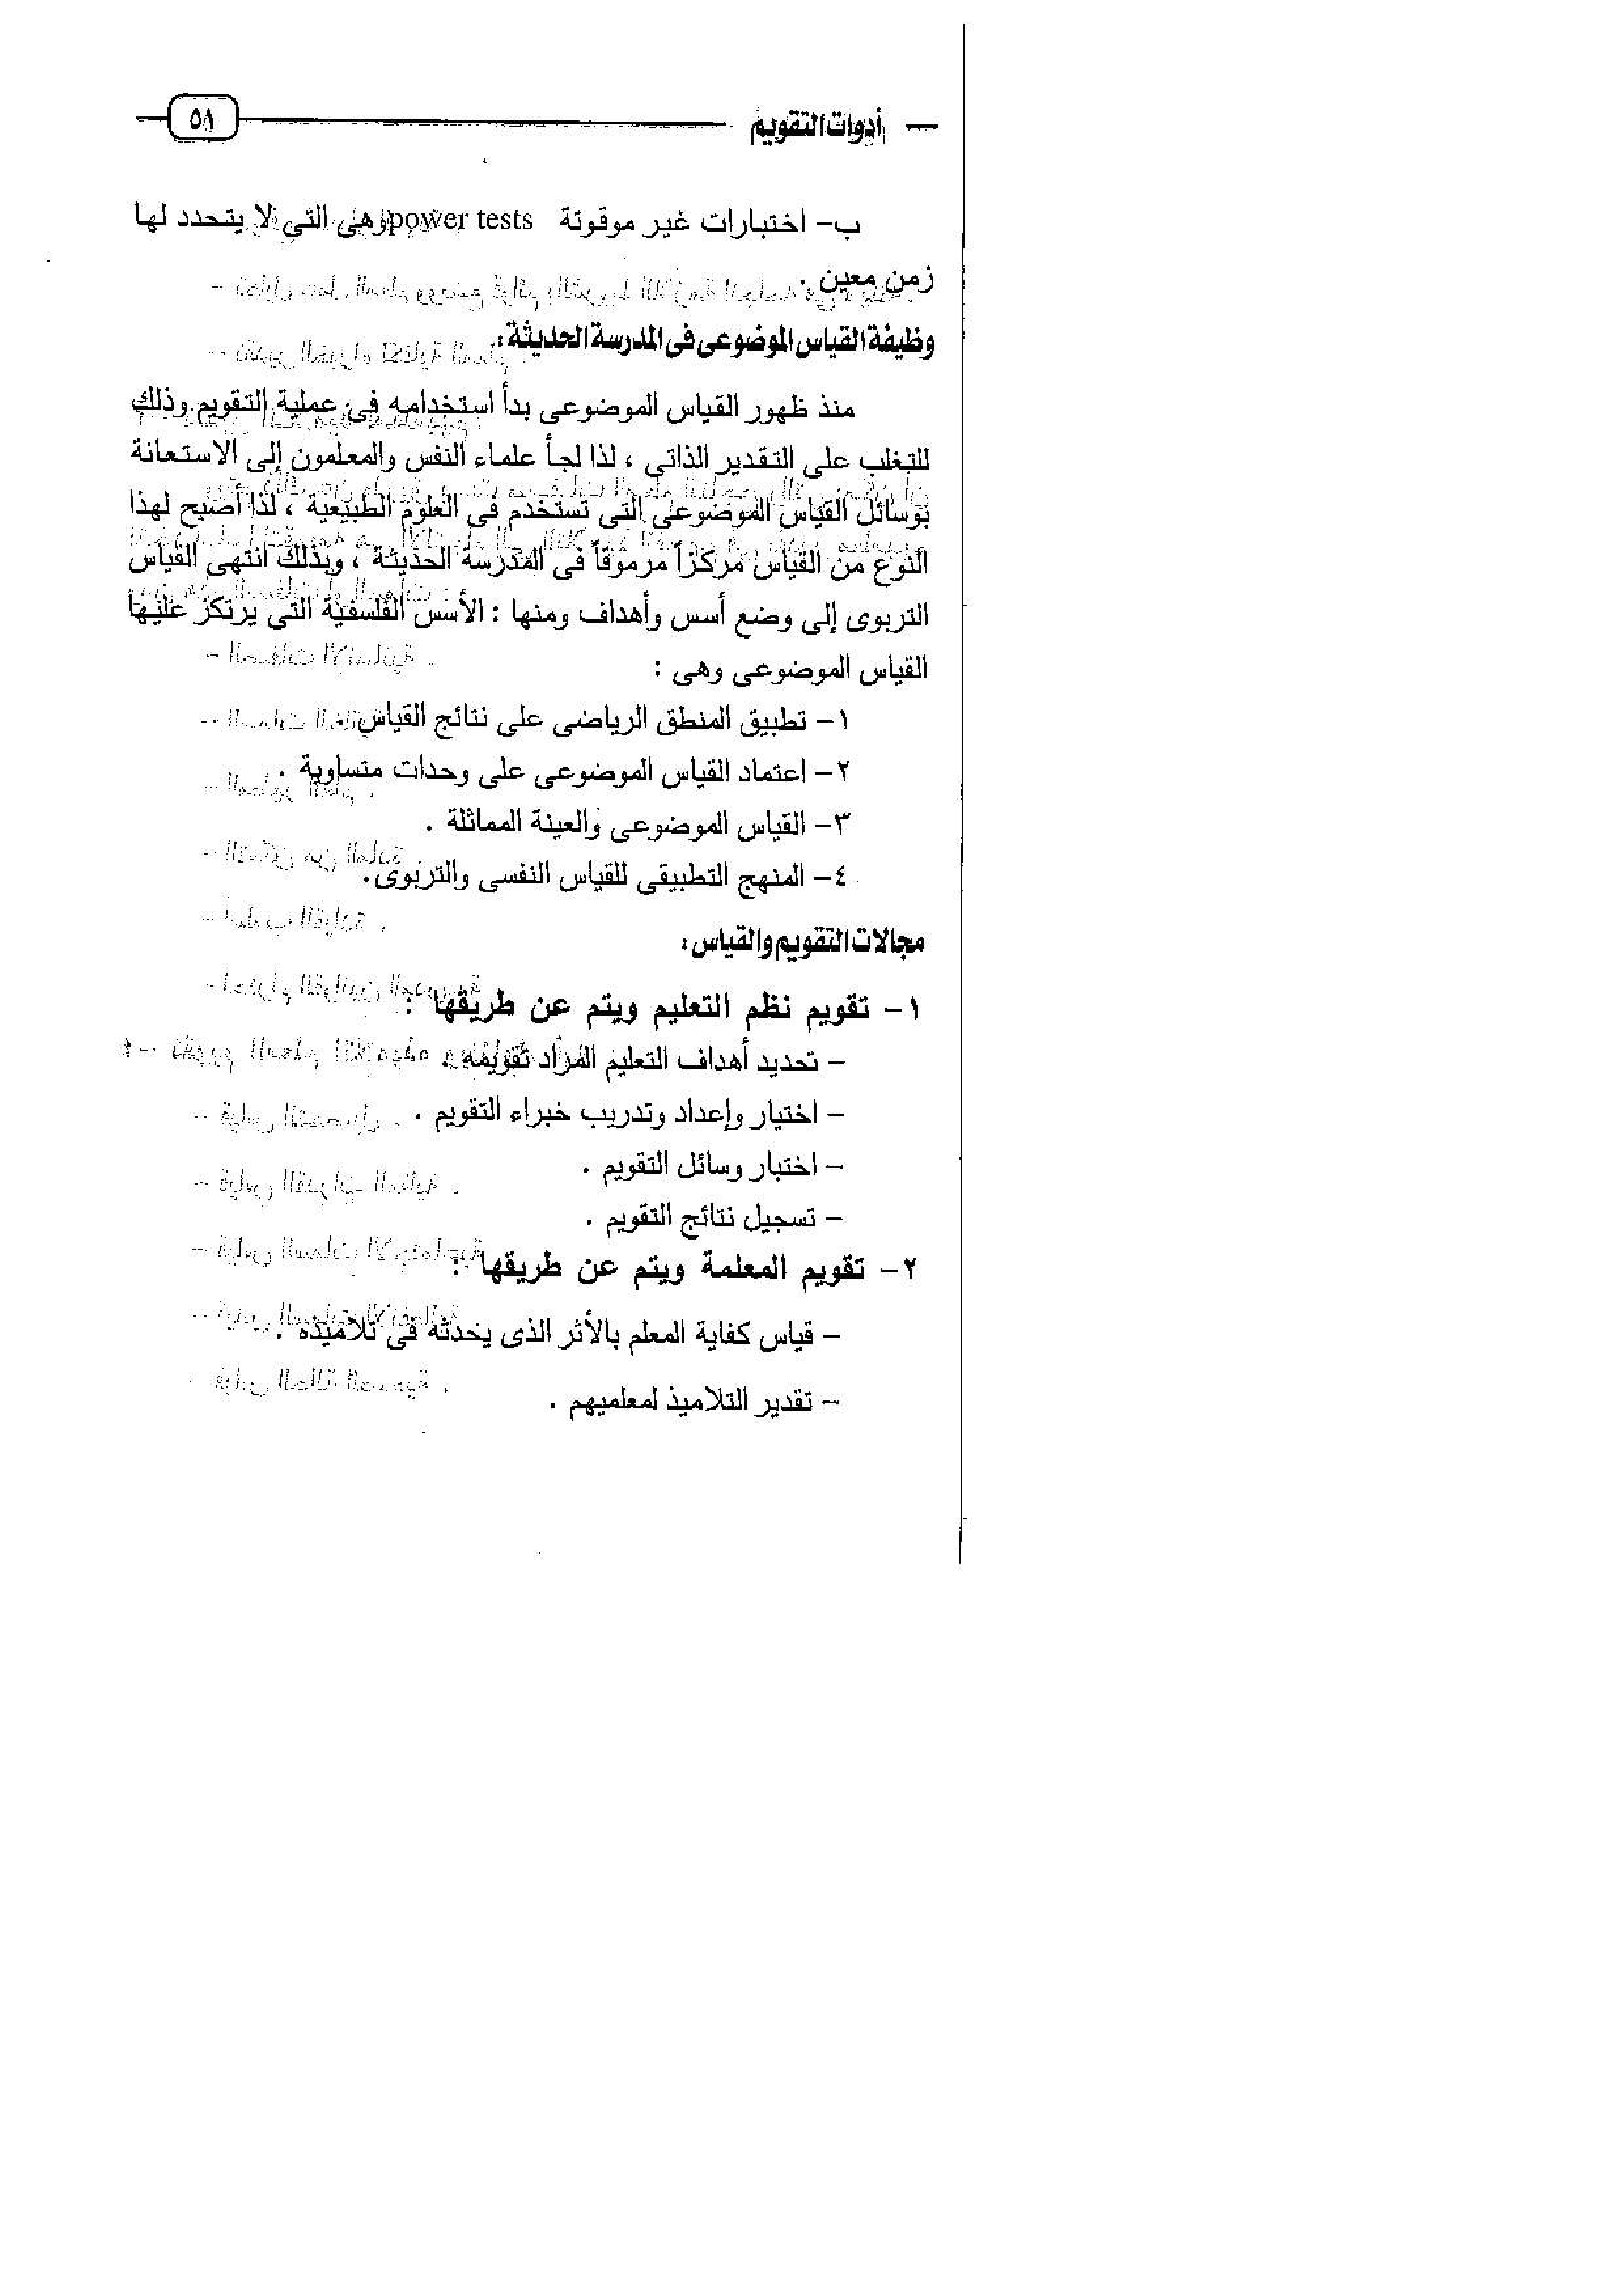 أدوات التقويم ٥٨
ب- اختبارات غير موقوتة power tests وهى التي لا يتحدد لها
زمن معين .
وظيفة القياس الموضوعى فى المدرسة الحديثة :
منذ ظهور القياس الموضوعى بدأ استخدامه فى عملية التقويم وذلك
للتغلب على التقدير الذاتي ، لذا لجأ علماء النفس والمعلمون إلى الاستعانة
بوسائل القياس الموضوعى التى تستخدم فى العلوم الطبيعية ، لذا أصبح لهذا
النوع من القياس مركزاً مرموقاً فى المدرسة الحديثة ، وبذلك انتهى القياس
التربوى إلى وضع أسس وأهداف ومنها : الأسس الفلسفية التى يرتكز عليها
القياس الموضوعى وهى :
١- تطبيق المنطق الرياضى على نتائج القياس
٢- اعتماد القياس الموضوعى على وحدات متساوية .
٣- القياس الموضوعى والعينة المماثلة .
٤- المنهج التطبيقى للقياس النفسى والتربوى.
مجالات التقويم والقياس :
١- تقويم نظم التعليم ويتم عن طريقها :
- تحديد أهداف التعليم المراد تقويمه .
- اختيار وإعداد وتدريب خبراء التقويم .
- اختبار وسائل التقويم .
- تسجيل نتائج التقويم .
٢- تقويم المعلمة ويتم عن طريقها :
- قياس كفاية المعلم بالأثر الذى يحدثه فى تلاميذه .
- تقدير التلاميذ لمعلميهم .